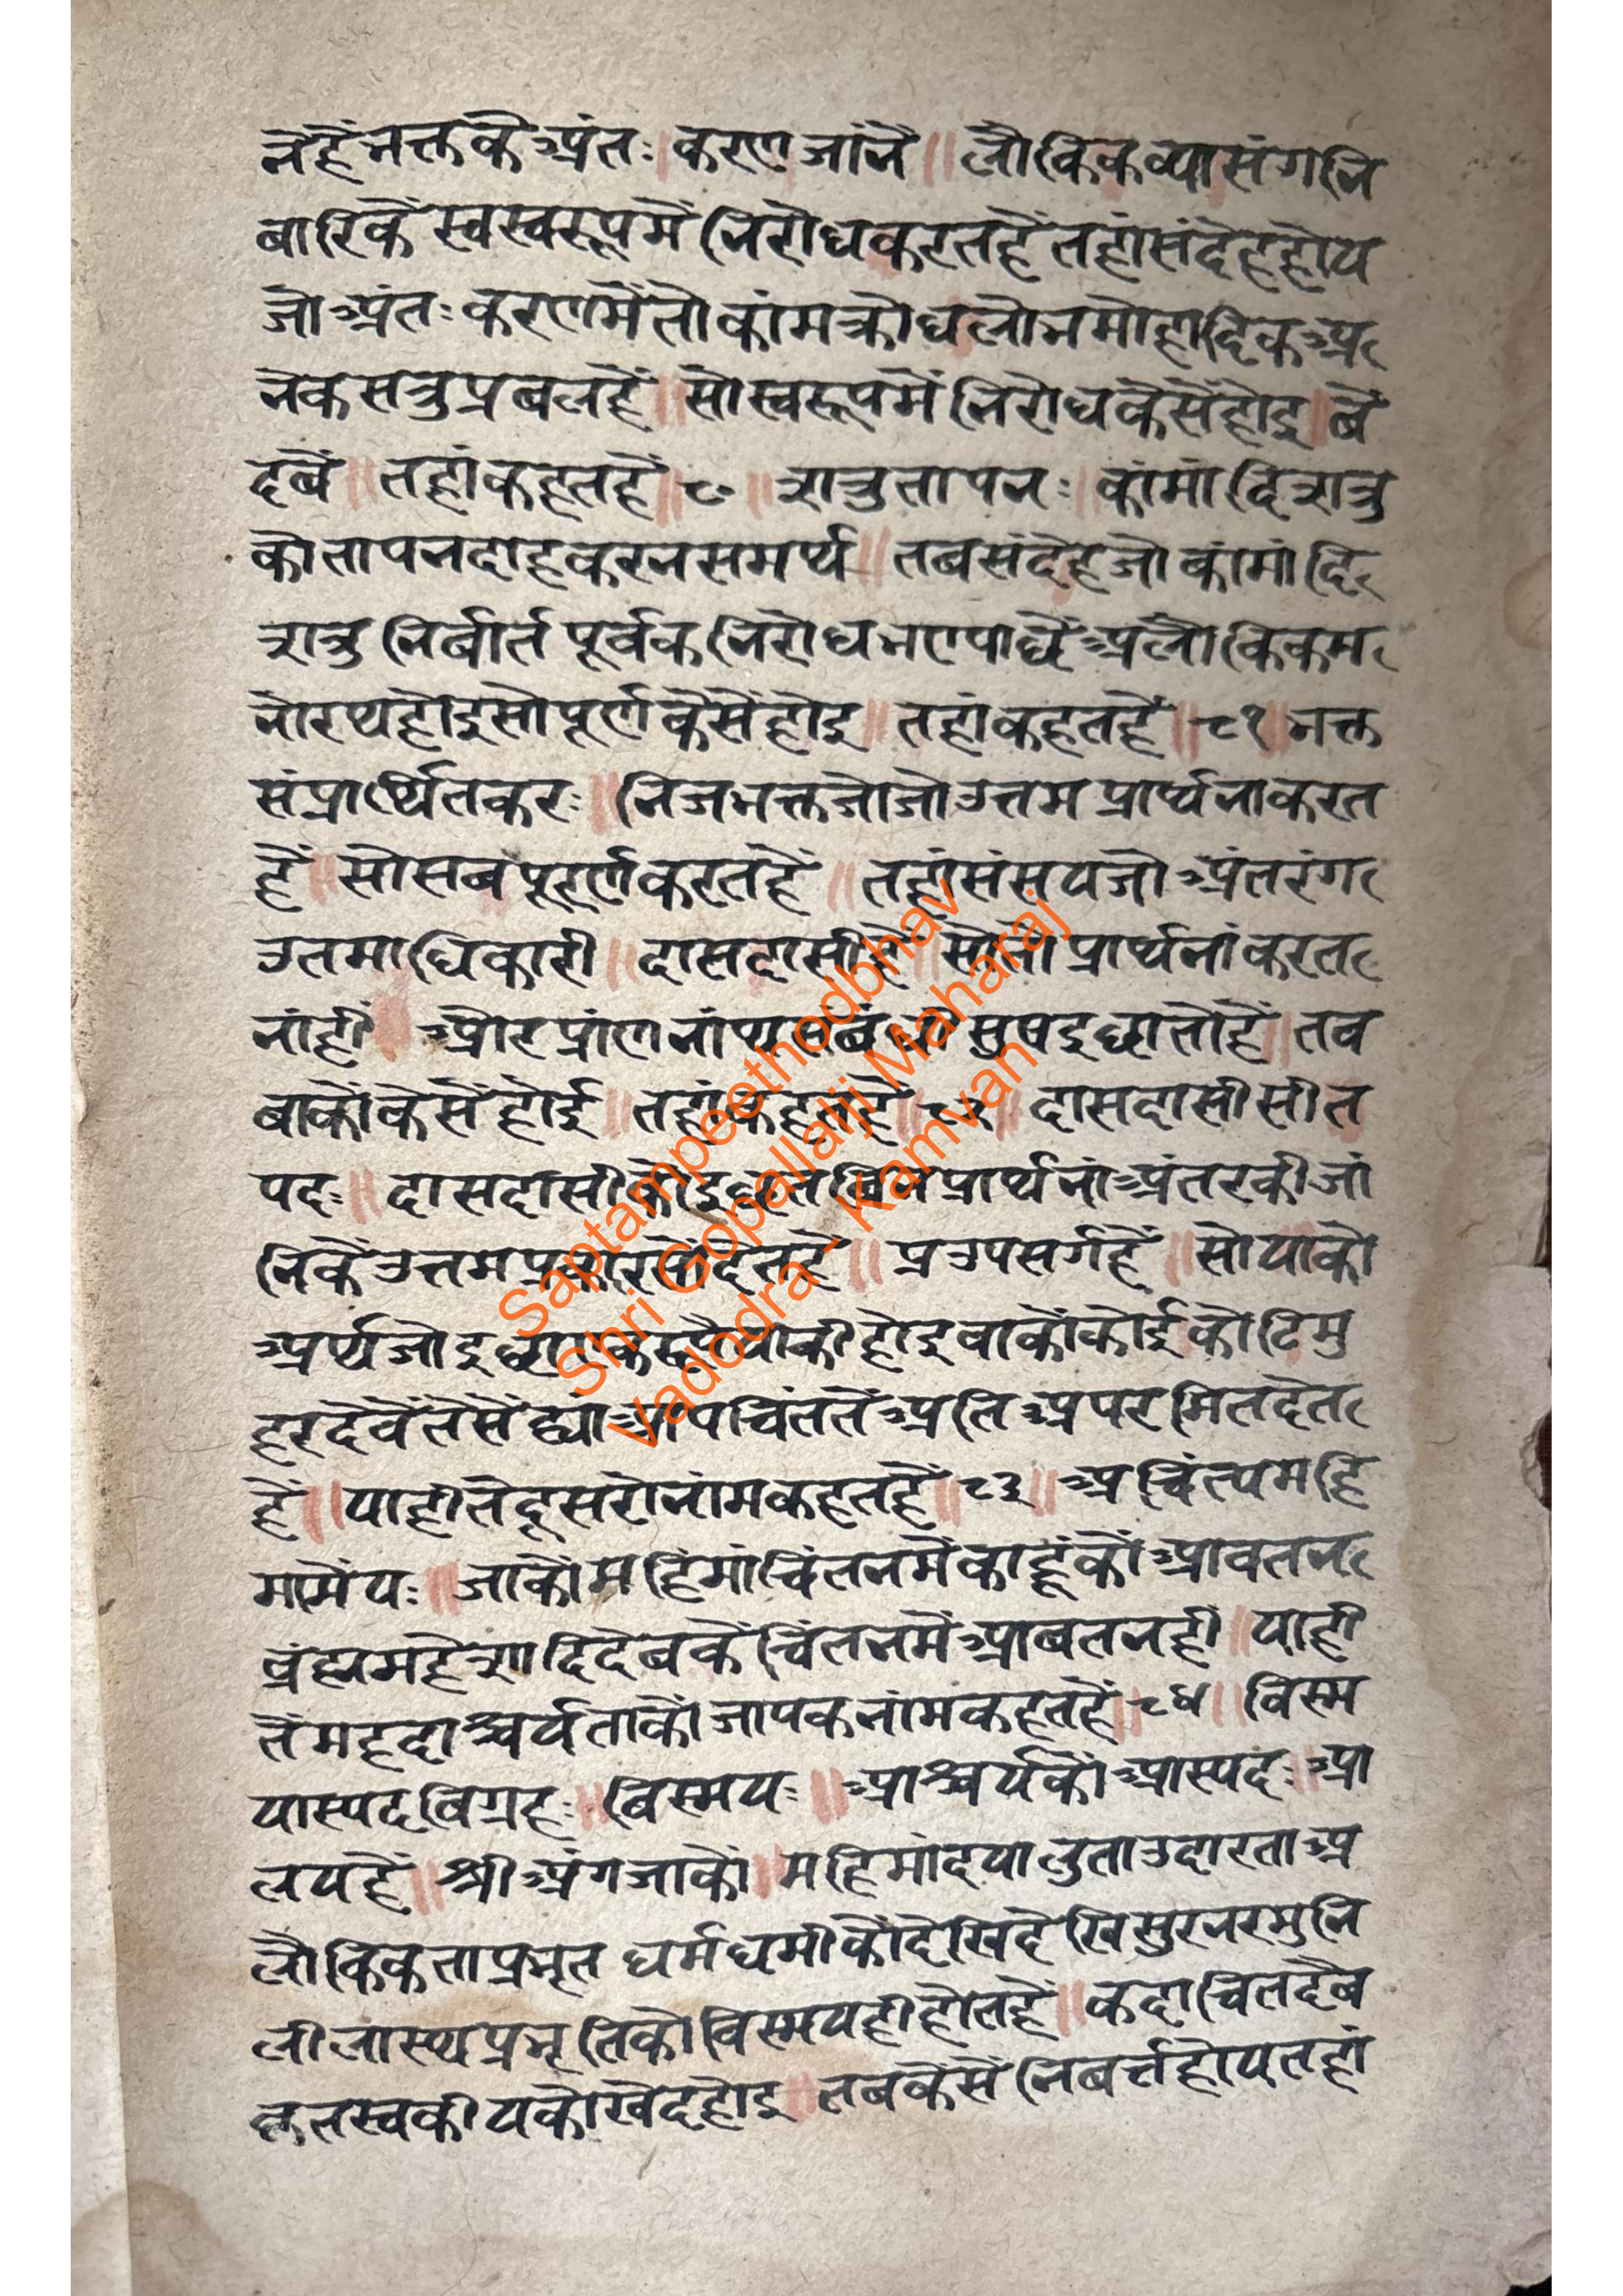 नेहैं भक्तके अंतः करण जांनें ॥ लौकिकव्यासंगनि
बारिकें स्वस्वरूपमें निरोधकरतहैं तहांसंदेहहोय
जो अंतः करणमेंतो कांमक्रोधलोभमोहादिक अ
नेकसत्रुप्रबलहैं ॥ सोस्वरूपमें निरोधकैसेंहोइ ॥ बे
दबें ॥ तहांकहतहैं ॥ ८० ॥ शत्रुतापनः ॥ कांमांदिशत्रु
कोतापनदाहकरनसमर्थ ॥ तबसंदेहजो कांमांदि
शत्रु निर्बार्त पूर्वक निरोधभएपाछें अलौकिकम
नोरथहोइसोपूर्णकैसेंहोइ ॥ तहांकहतहैं ॥ ८१ ॥ भक्त
संप्रार्थितकरः ॥ निजभक्तजोजोउत्तम प्रार्थनाकरत
हैं ॥ सोसबपूर्णकरतहैं ॥ तहांसंसयजो अंतरंग
उतमाधिकारी ॥ दासदासीहैं ॥ सोतो प्रार्थनांकरत
नांहीं और प्रांणनांथसंबंधी सुषइछातोहैं ॥ तब
बाकोंकेसेंहोई ॥ तहांकहतहैं ॥ ८२ ॥ दासदासीसीत
पदः ॥ दासदासीकोइछितबिनप्रार्थनां अंतरकीजां
निकेंउत्तमप्रकारसोंदेतहैं ॥ प्रउपसर्गहैं ॥ सोयाको
अर्थजोइछाएकरूपैयाकीहोइवाकोंकोईकोटिमु
हरदेवेंतैसेंह्यां आपचिंततें अति अपरमितदेत
हैं ॥ याहीतेंदूसरोनांमकहतहैं ॥ ८३ ॥ अचिंत्यमहि
मामेयः ॥ जाकोंमहिंमांचिंतनमेंकाहूंकों आवतन
ब्रंह्ममहेशादिदेबकें चिंतनमें आबतनहीं ॥ याही
तेंमहदाश्चर्यताकों जापकनांमकहतहैं ॥ ८४ ॥ विस्म
यास्पदविग्रहः ॥ बिस्मयः ॥ आश्चर्यकों आस्पदः ॥ आ
लयहैं ॥ श्रीअंगजाकों ॥ महिमांदयालुताउदारताअ
लौकिकताप्रभृत धर्मधर्मीकोंदेखिदेखिसुरनरमुनि
लीलास्थप्रभृतिकोविस्मयहीहोतहैं ॥ कदाचितदैब
कृतस्वकीयकोखेदहोइ ॥ तबकैसें निबर्त्तहोयतहां
Saptampeethodbhav
Shri Gopallalji Maharaj
Vadodra - Kamvan